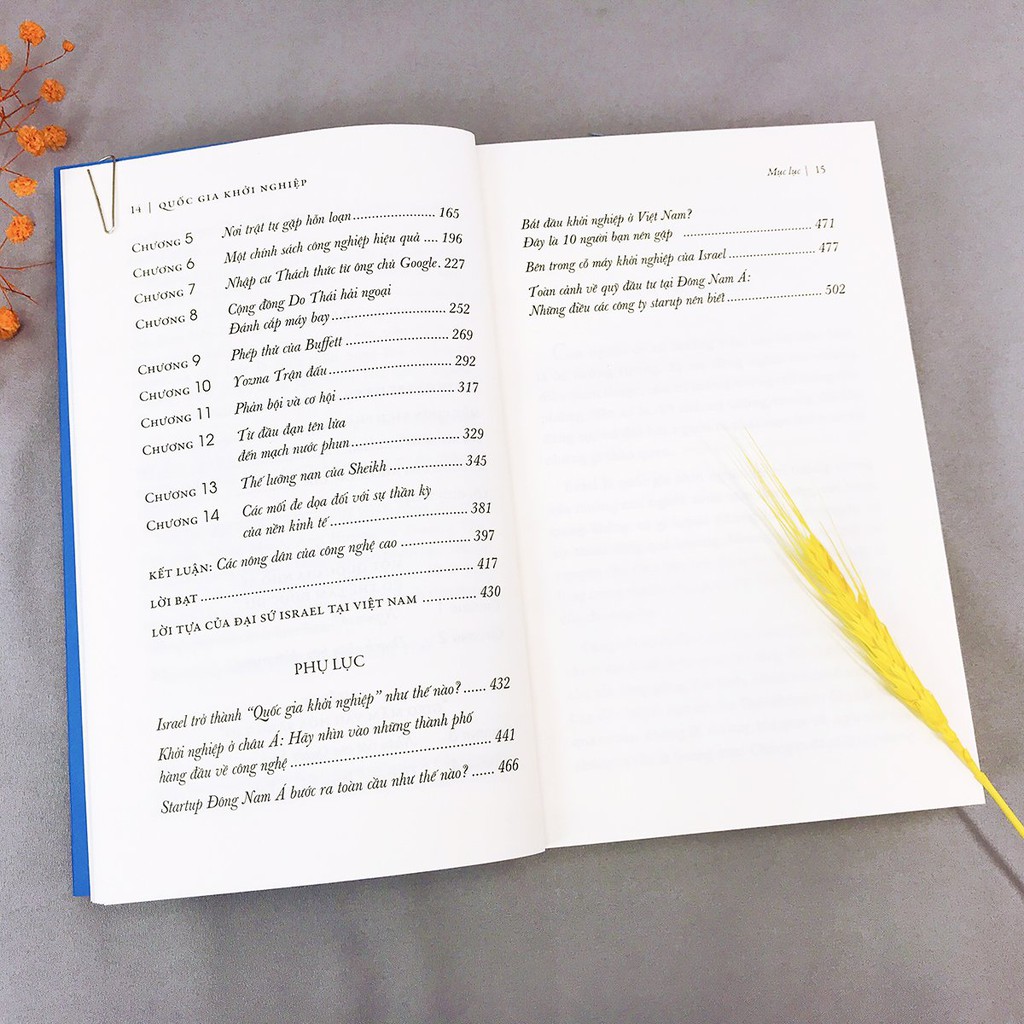 14 | QUỐC GIA KHỞI NGHIỆP
CHƯƠNG 5 Nơi trật tự gặp hỗn loạn........................ 165
CHƯƠNG 6 Một chính sách công nghiệp hiệu quả .... 196
CHƯƠNG 7 Nhập cư Thách thức từ ông chủ Google. 227
CHƯƠNG 8 Cộng đồng Do Thái hải ngoại
Đánh cắp máy bay........................................ 252
CHƯƠNG 9 Phép thử của Buffett ............................... 269
CHƯƠNG 10 Yozma Trận đấu..................................... 292
CHƯƠNG 11 Phản bội và cơ hội .................................. 317
CHƯƠNG 12 Từ đầu đạn tên lửa
đến mạch nước phun................................ 329
CHƯƠNG 13 Thế lưỡng nan của Sheikh ...................... 345
CHƯƠNG 14 Các mối đe dọa đối với sự thần kỳ
của nền kinh tế......................................... 381
KẾT LUẬN: Các nông dân của công nghệ cao .................... 397
LỜI BẠT ................................................................................ 417
LỜI TỰA CỦA ĐẠI SỨ ISRAEL TẠI VIỆT NAM ................ 430
PHỤ LỤC
Israel trở thành “Quốc gia khởi nghiệp” như thế nào? ...... 432
Khởi nghiệp ở châu Á: Hãy nhìn vào những thành phố
hàng đầu về công nghệ ........................................................ 441
Startup Đông Nam Á bước ra toàn cầu như thế nào? ...... 466
Mục lục | 15
Bắt đầu khởi nghiệp ở Việt Nam?
Đây là 10 người bạn nên gặp ...................................... 471
Bên trong cỗ máy khởi nghiệp của Israel ......................... 477
Toàn cảnh về quỹ đầu tư tại Đông Nam Á:
Những điều các công ty starup nên biết ........................... 502